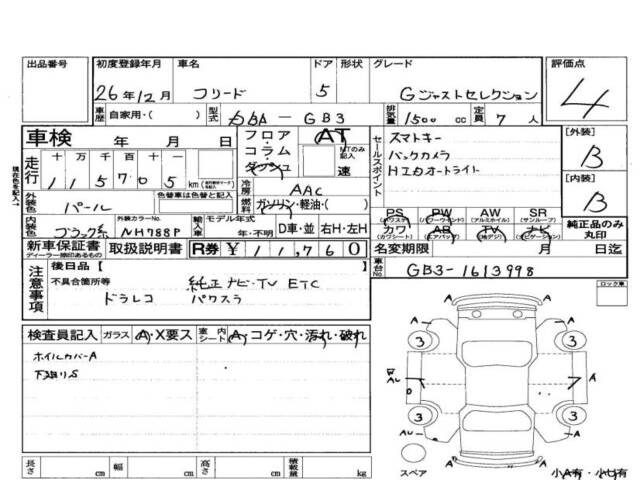 出品番号 初度登録年月 車名 ドア 形状 グレード 評価点
26年12月 フリード 5 Gジャストセレクション 4
車歴 自家用・( ) 型式 DBA-GB3 排気量 1500 cc 定員 7 人
車検 年 月 日 フロア・コラム・ダッシュ AT MTのみ記入 速 セールスポイント スマトキー [外装] B
走行 十 万 千 百 十
1 1 5 7 0 5 km バックカメラ
冷房 AAC HIDオートライト [内装] B
外装色 パール 色替車は色替と記入 燃料 ガソリン・軽油・( )
PS PW AW SR
(パワステ) (パワーウインド) (アルミホイル) (サンルーフ)
内装色 ブラック系 外装カラーNo. NH788P 輸入車 モデル年式 年・不明 D車・並 右H・左H カワ AB TV ナビ 純正品のみ丸印
(カワシート) (エアバッグ) (地デジ) (ナビゲーション)
新車保証書 取扱説明書 R券 ¥ 11,760 名変期限 月 日迄
ディーラー捺印あるもの
車台No. GB3-1613998
注意事項 後日品【 】
不具合箇所等 純正ナビ・TV ETC
ドラレコ パワスラ
ロック車
検査員記入 ガラス A・X要ス 室内シート A・コゲ・穴・汚れ・破れ
ホイルカバーA
下廻りS
A A
3 3
A
3 3
A
A A
スペア 小A有・小U有
長さ cm 幅 cm 高さ cm 積載量 kg